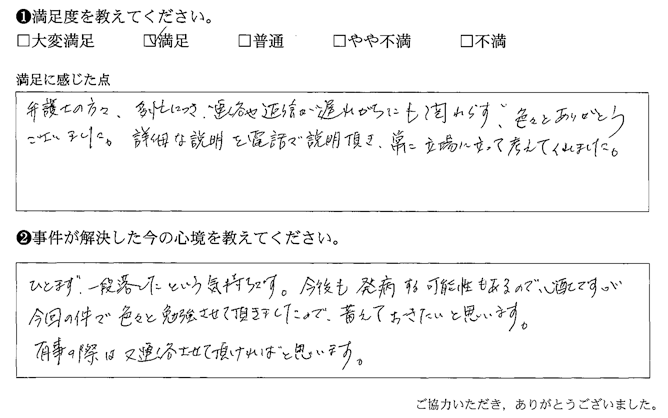 ❶満足度を教えてください。
□大変満足 ☑満足 □普通 □やや不満 □不満
満足に感じた点
弁護士の方々、多忙につき、連絡や返信が遅れがちにも関わらず、色々とありがとう
ございました。詳細な説明を電話で説明頂き、常に立場に立って考えてくれました。
❷事件が解決した今の心境を教えてください。
ひとまず、一段落したという気持ちです。今後も発病する可能性もあるので、心配ですが
今回の件で色々と勉強させて頂きましたので、蓄えておきたいと思います。
有事の際は又連絡させて頂ければと思います。
ご協力いただき，ありがとうございました。